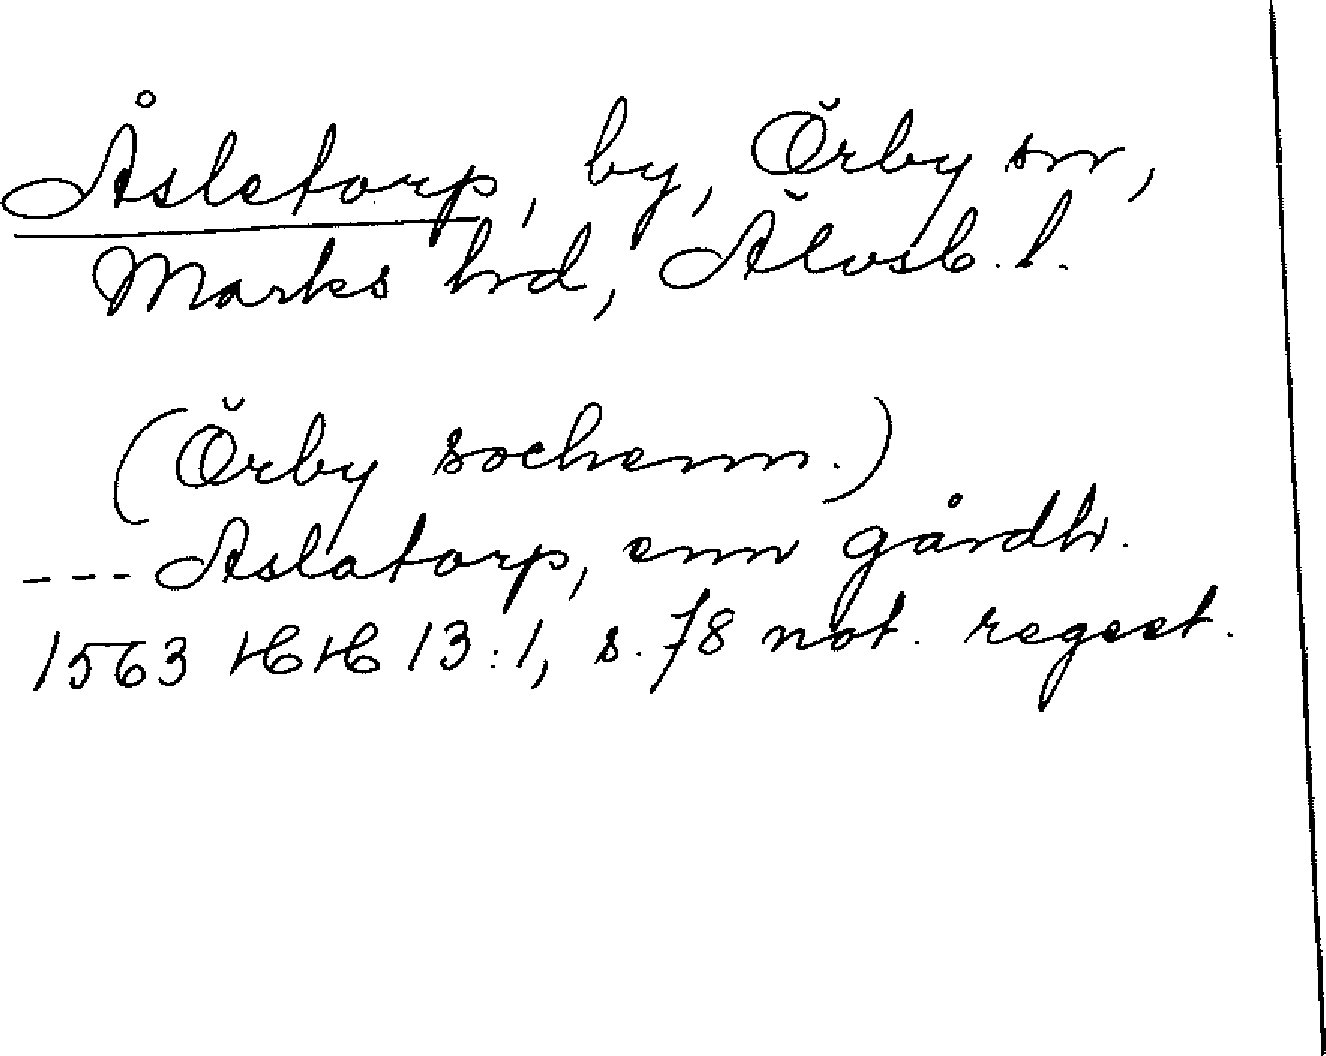 Åsletorp, by, Örby sn,
Marks hd, Älvsb. l.
(Örby sochenn.)
--- Aslatorp, enn gårdh.
1563 HH 13:1, s. 78 not. regest.